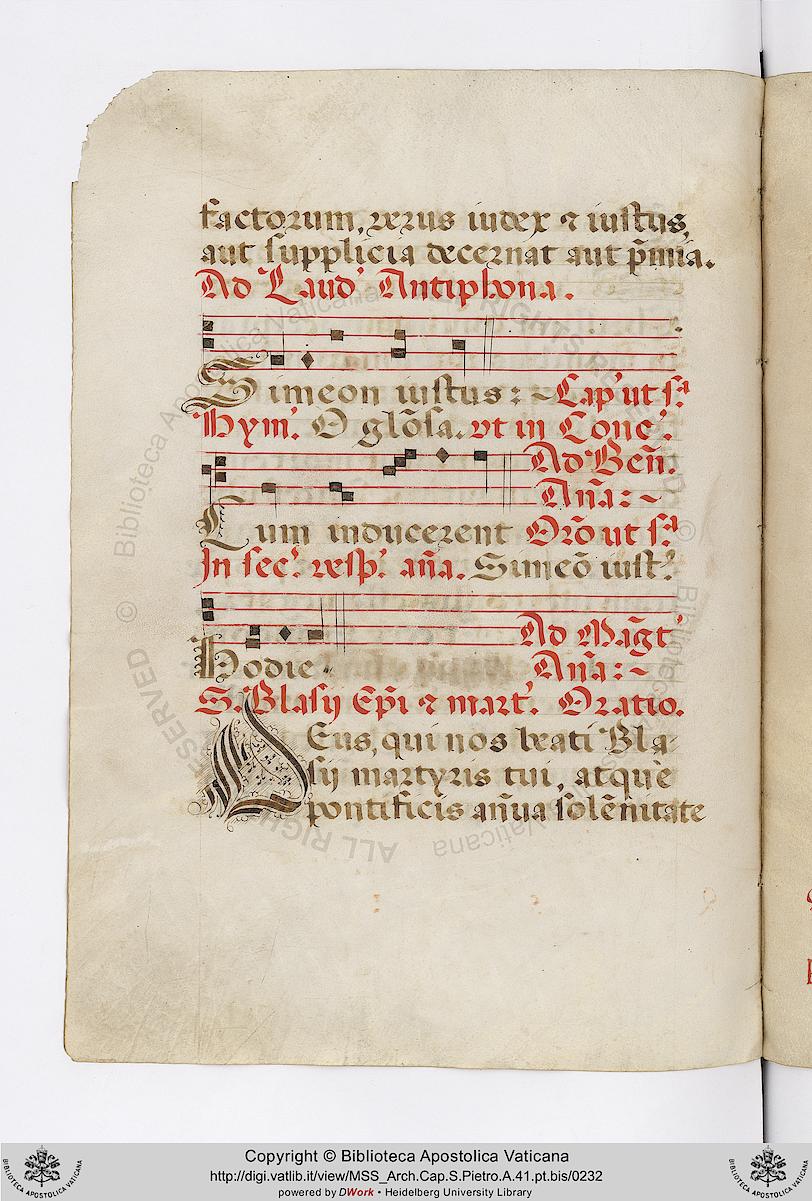 factorum, verus iudex ⁊ iustus,
aut supplicia decernat aut p̃mia.
Ad Laud' Antiphona.
Simeon iustus: ~ Cap' ut sᵃ
Hym'. O glõsa. vt in Conc'.
Ad Beñ.
Añа: ~
Cum inducerent Orõ ut sᵃ
In sec'. vesp'. aña. Simeõ iust'.
Ad Mag̃t'
Hodie Añа: ~
S. Blasij Ep̃i ⁊ mart'. Oratio.
DEus, qui nos beati Bla-
sij martyris tui, atque
pontificis añua solẽnitate
Copyright © Biblioteca Apostolica Vaticana
http://digi.vatlib.it/view/MSS_Arch.Cap.S.Pietro.A.41.pt.bis/0232
powered by DWork • Heidelberg University Library
© Biblioteca Apostolica Vaticana ALL RIGHTS RESERVED
© Biblioteca Apostolica Vaticana ALL RIGHTS RESERVED